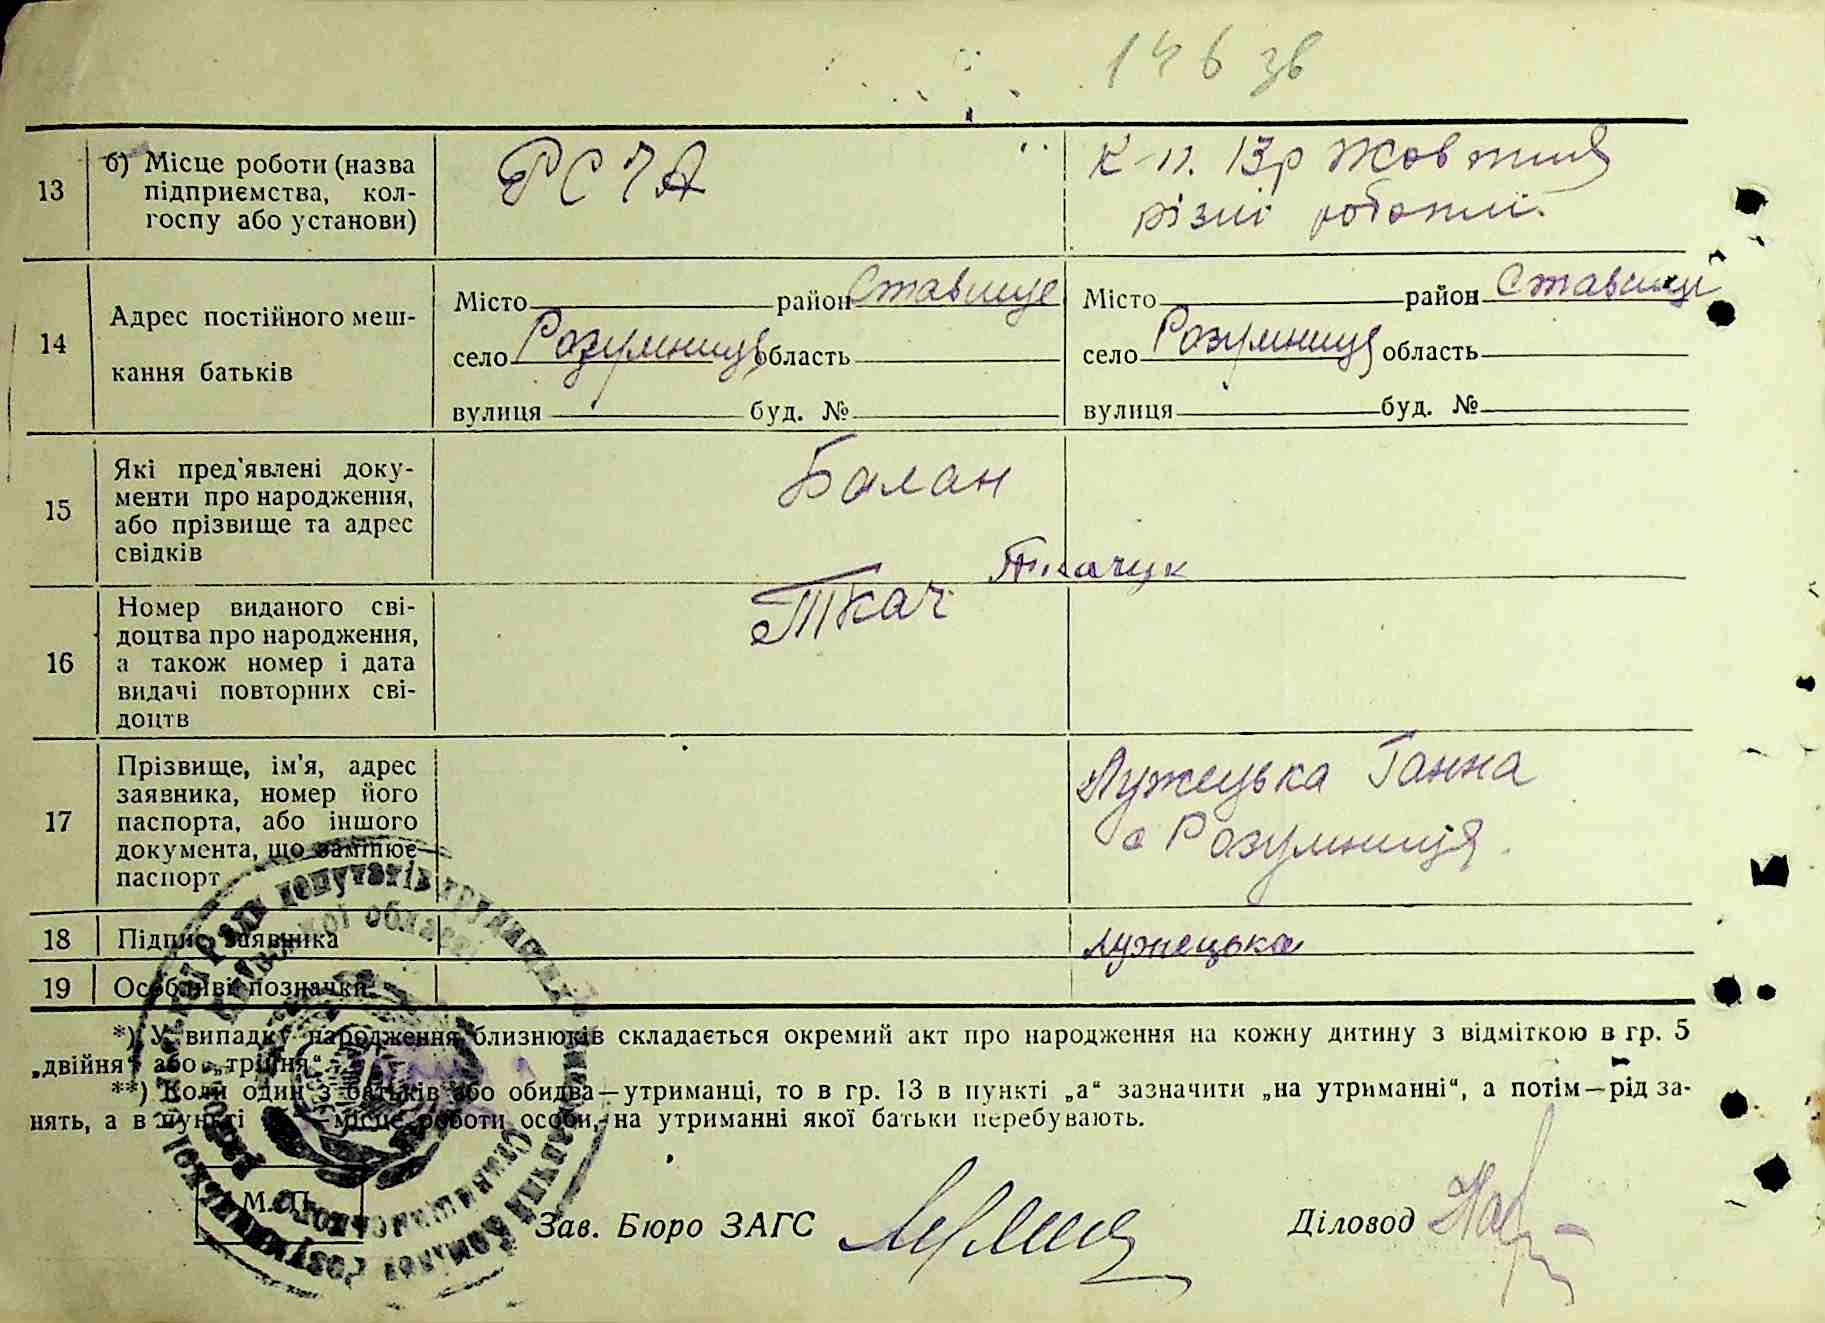 146 зв
13
б) Місце роботи (назва
підприємства, кол-
госпу або установи)
РСЧА
К-п. 13р Жовтня
різні роботи.
14
Адрес постійного меш-
кання батьків
Місто район Ставище
село Розумниця область
вулиця буд. №
Місто район Ставище
село Розумниця область
вулиця буд. №
15
Які пред'явлені доку-
менти про народження,
або прізвище та адрес
свідків
Балан
Ткачук
16
Номер виданого сві-
доцтва про народження,
а також номер і дата
видачі повторних сві-
доцтв
Ткач
17
Прізвище, ім'я, адрес
заявника, номер його
паспорта, або іншого
документа, що замінює
паспорт
Лужецька Ганна
с Розумниця.
18
Підпис заявника
лужецька
19
Особливі позначки
*) У випадку народження близнюків складається окремий акт про народження на кожну дитину з відміткою в гр. 5
„двійня“ або „трійня“.
**) Коли один з батьків або обидва—утриманці, то в гр. 13 в пункті „а“ зазначити „на утриманні“, а потім—рід за-
нять, а в пункті —місце роботи особи, на утриманні якої батьки перебувають.
М. П.
Зав. Бюро ЗАГС
Діловод
Ради депутатів трудящих
Київської області